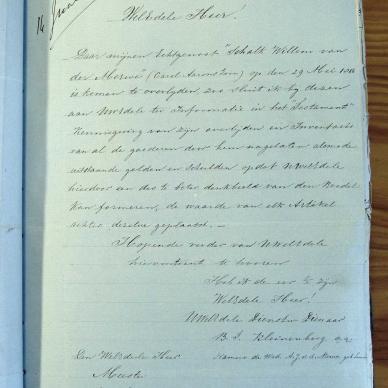 16
WelEdele Heer!
Daar mijnen Echtgenoot "Schalk Willem van
der Merwe" (Carel Aaronszoon) op den 29 Mei
is komen te overlijden, zoo sluit ik by dezen
aan UwEdele ter Informatie in het "Testament"
Kennisgeving van zijn overlijden en Inventaris
van al de goederen door hem nagelaten alsmede
uitstaande gelden en schulden opdat UWelEdele
hierdoor een des te beter denkbeeld van den Boedel
kan formeren, de waarde van elk Artikel
achter dezelve geplaatst.—
Hopende verder van UWelEdele
hieromtrent te hooren
Heb ik de eer te zijn
WelEdele Heer!
UWelEdele Dienstw Dienaar
B. J. Kleinenberg
Namens de Wed. A. J. v. d. Merwe
Den WelEdele Heer
Meester